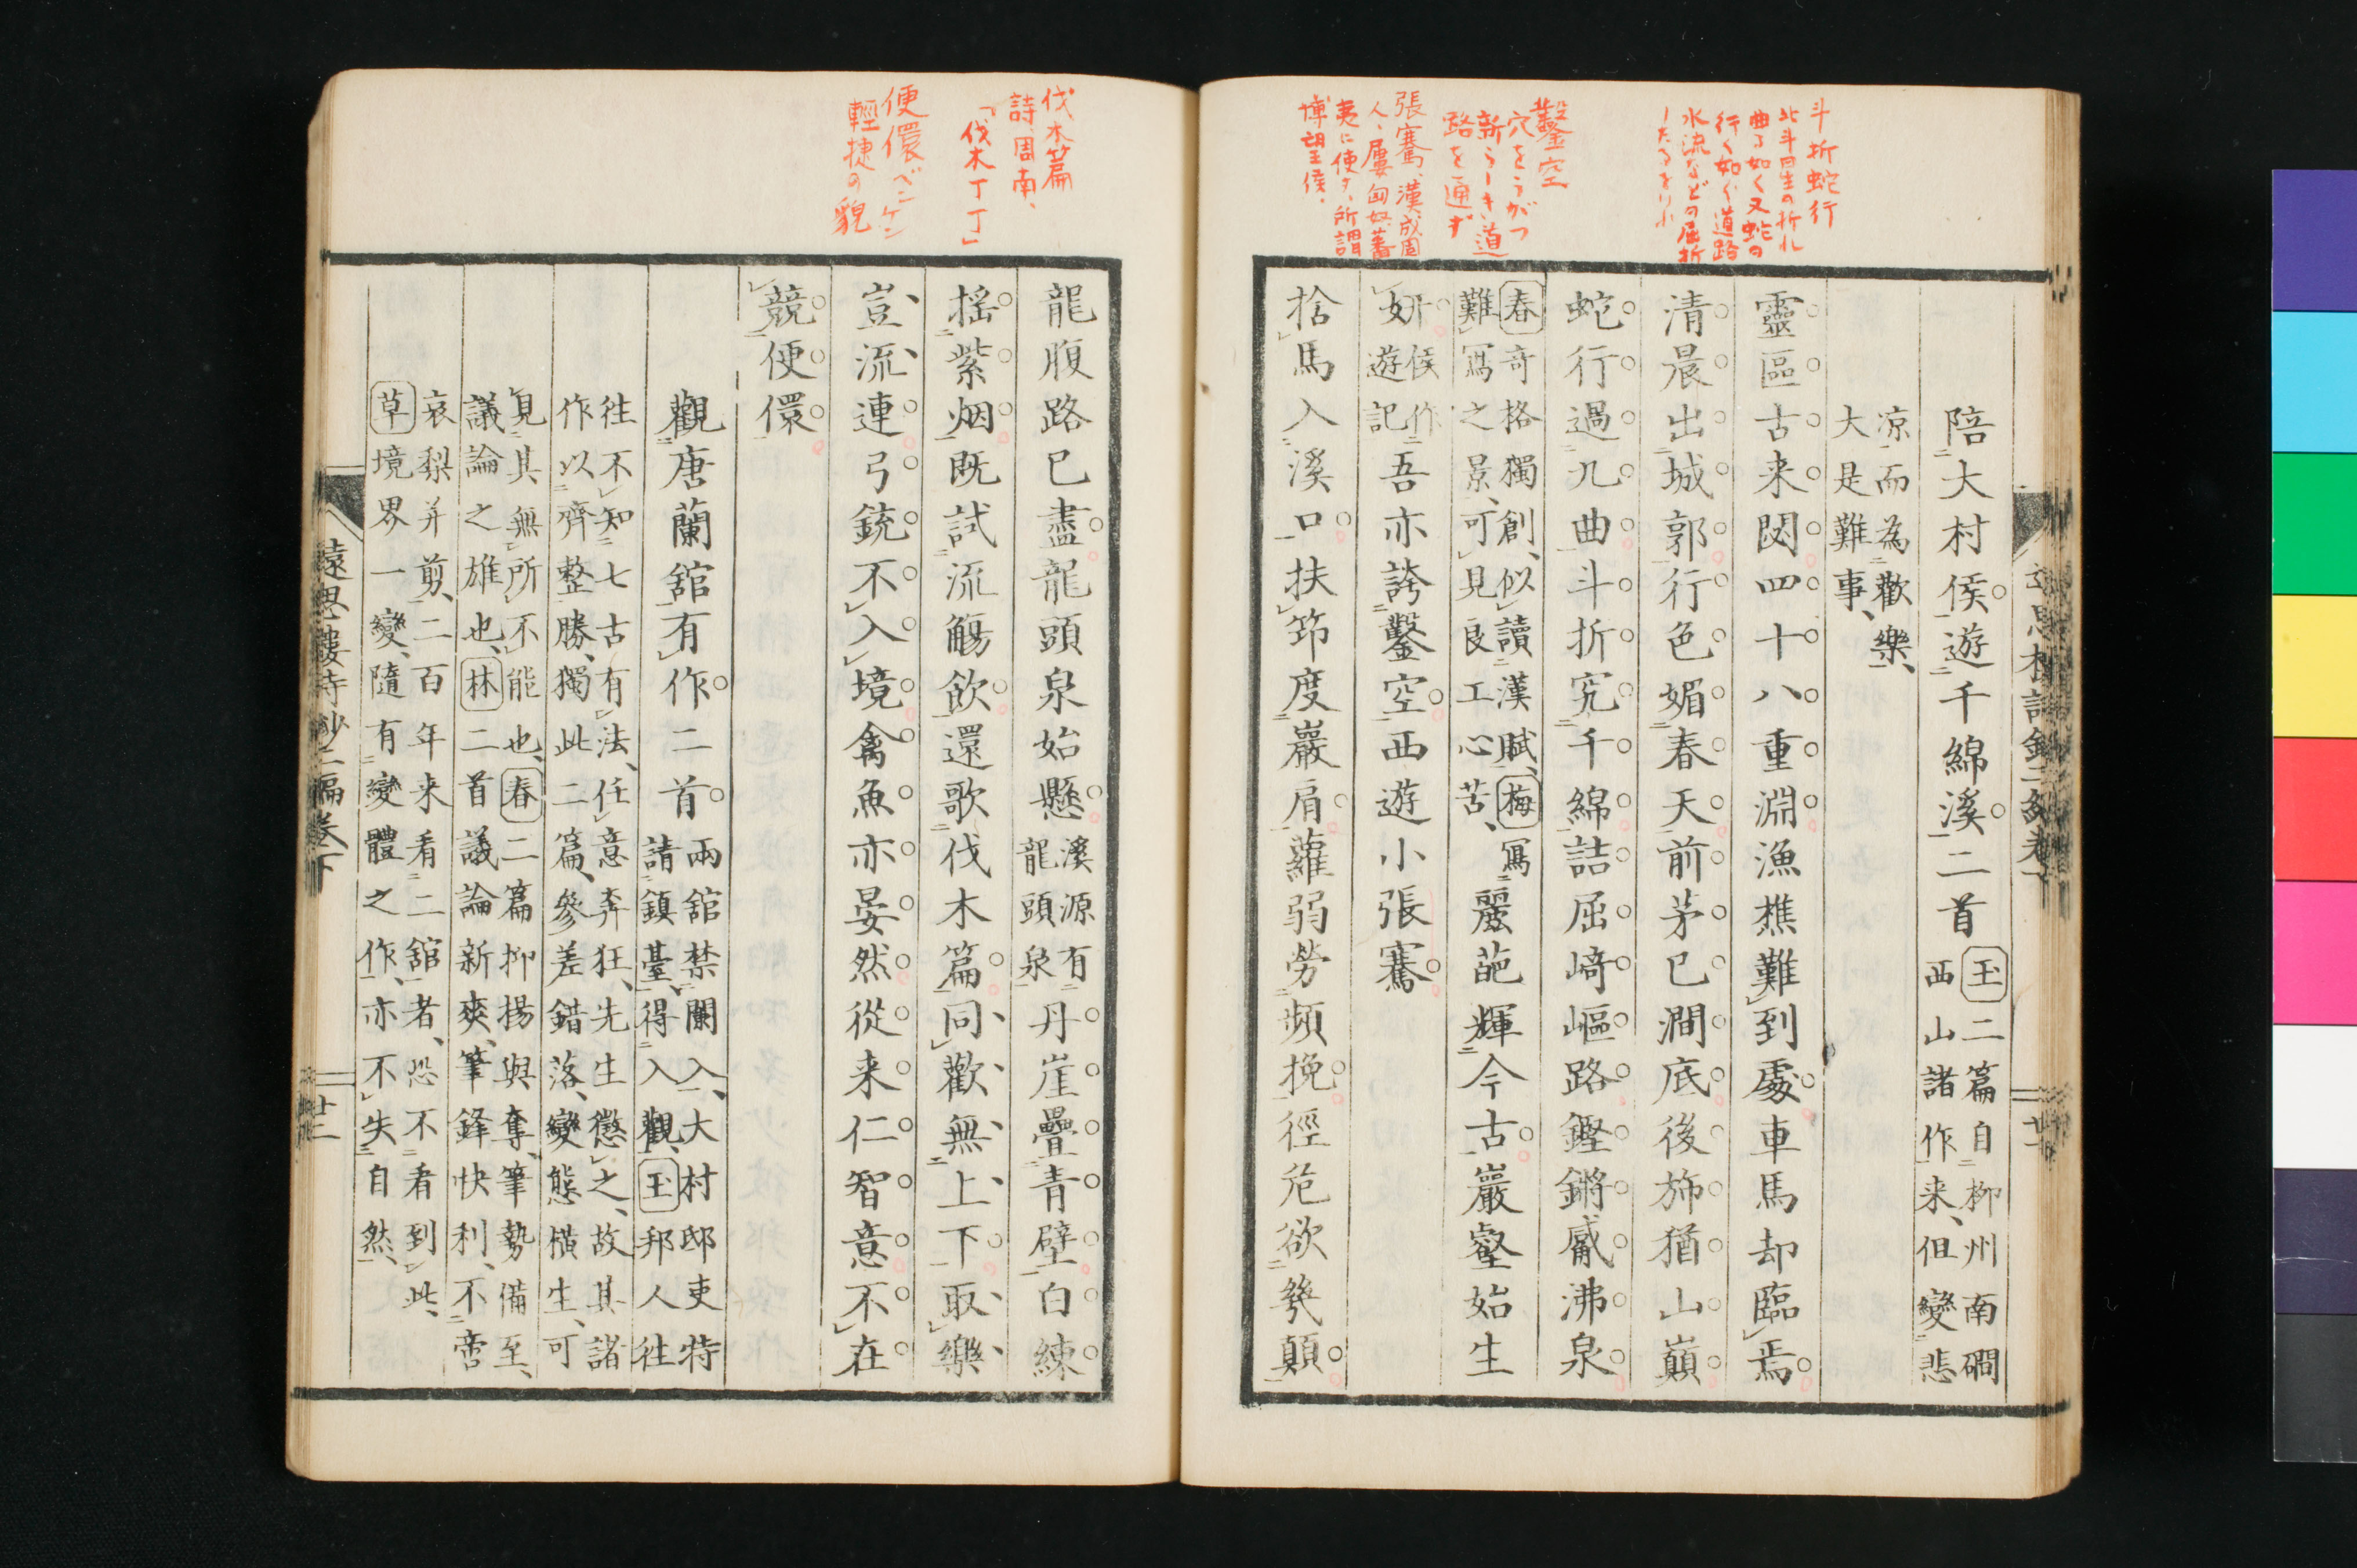 斗折蛇行
北斗星の折れ
曲る如く又蛇の
行く如く道路
水流などの屈折
したるをいふ
鑿空
穴をうがつ
新らしき道
路を通ず
張騫、漢、成固
人、屢匈奴蕃
夷に使す、所謂
博望侯、
陪大村侯遊千綿溪二首
玉二篇自柳州南磵
西山諸作来、但變悲
凉而為歡樂、
大是難事、
靈區古来閟四十八重淵漁樵難到處車馬却臨焉
清晨出城郭行色媚春天前茅已澗底後斾猶山巔
蛇行過九曲斗折究千綿詰屈崎嶇路鏗鏘觱沸泉
春奇格獨創、似讀漢賦、梅寫
難寫之景、可見良工心苦、
麗葩輝今古巖壑始生
妍
侯作
遊記
吾亦誇鑿空西遊小張騫
捨馬入溪口扶筇度巖肩蘿弱勞頻挽徑危欲幾顛
伐木篇
詩、周南、
「伐木丁丁」
便儇ベンケン
輕捷の貌
龍腹路已盡龍頭泉始懸
溪源有
龍頭泉
丹崖疊青壁白練
搖紫烟既試流觴飲還歌伐木篇同歡無上下取樂
豈流連弓銃不入境禽魚亦晏然從来仁智意不在
競便儇
觀唐蘭舘有作二首
兩舘禁闌入、大村邸吏特
請鎮臺、得入觀、玉邦人往
往不知七古有法、任意奔狂、先生懲之、故其諸
作以齊整勝、獨此二篇、參差錯落、變態横生、可
見其無所不能也、春二篇抑揚與奪、筆勢備至、
議論之雄也、林二首議論新爽、筆鋒快利、不啻
哀梨并剪、二百年来看二舘者、恐不看到此、
草境界一變、隨有變體之作、亦不失自然、
遠思樓詩鈔二編卷下
廿二